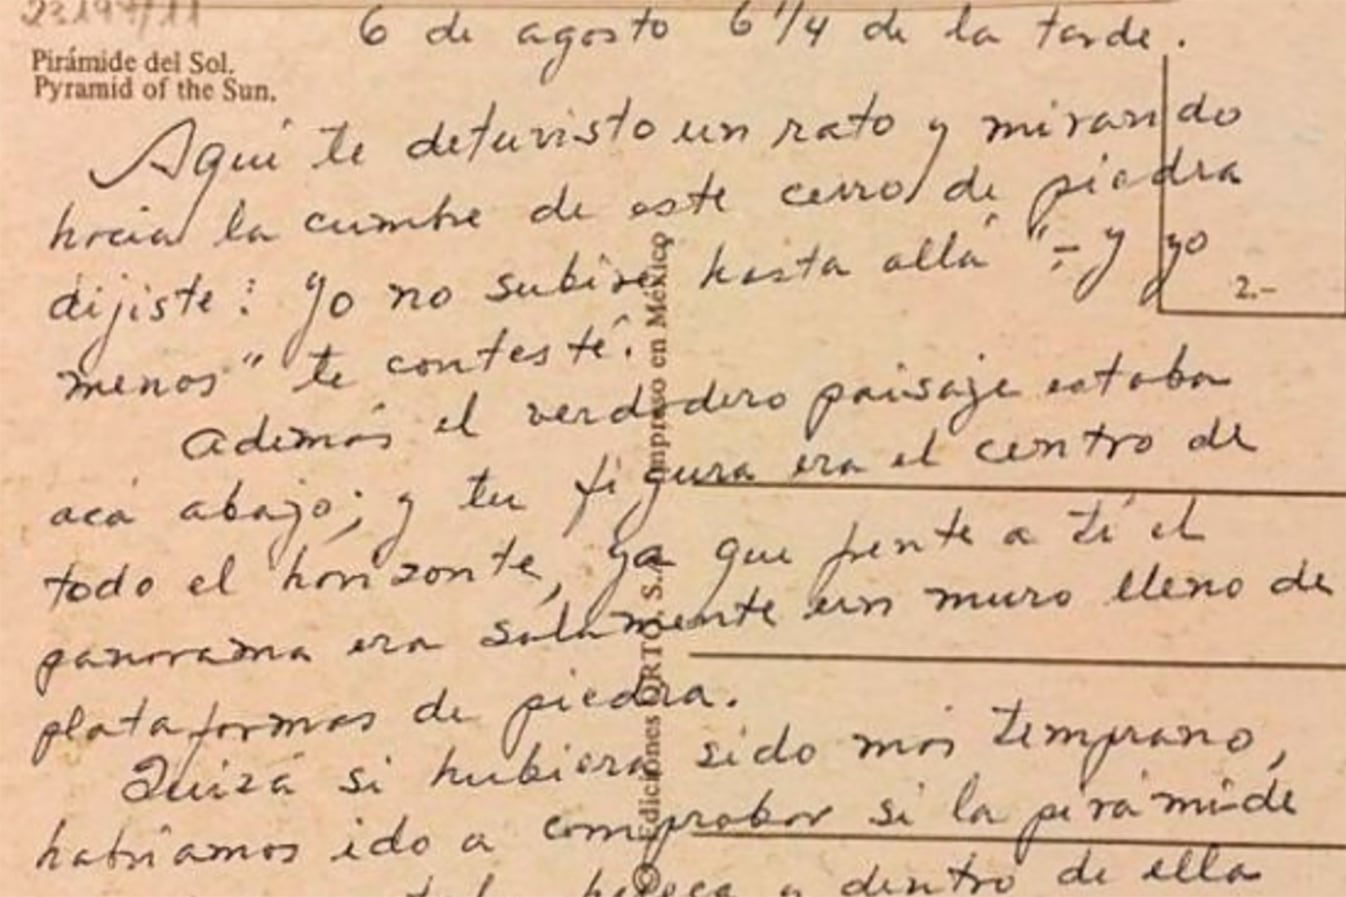 6 de agosto 6 1/4 de la tarde.
Pirámide del Sol.
Pyramid of the Sun.
Aquí te detuvisto un rato y mirando
hacia la cumbre de este cerro de piedra
dijiste: Yo no subiré hasta allá" - y yo
menos" te contesté.
Además el verdadero paisaje estaba
acá abajo; y tu figura era el centro de
todo el horizonte, ya que frente a tí el
panorama era solamente un muro lleno de
plataformas de piedra.
Quizá si hubiera sido más temprano,
habríamos ido a comprobar si la pirámide
y dentro de ella
2.-
© Ediciones ORTO, S.A. Impreso en México